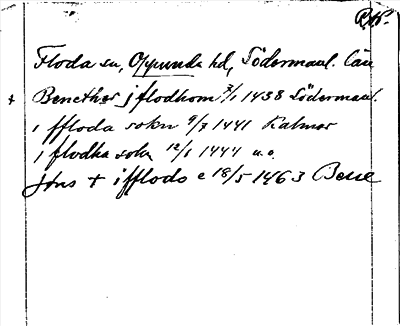 Floda sn, Oppunda hd, Södermanl. län
+ Benethær j flodhom 7/1 1438 Södermanl.
i ffloda sokn 9/7 1441 Kalmar
j flodha sokn 12/1 1444 u.o.
Jöns + i fflodo e 18/5 1463